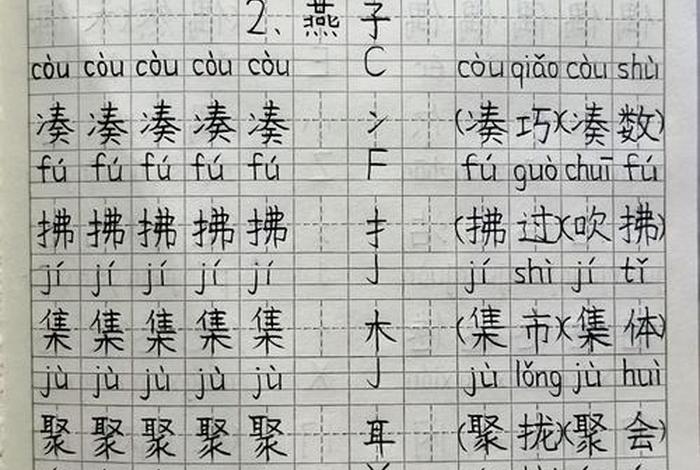 2、燕子
còu còu còu còu còu C còu qiǎo còu shù
凑 凑 凑 凑 凑 冫 (凑 巧)(凑 数)
fú fú fú fú fú F fú guò chuī fú
拂 拂 拂 拂 拂 扌 (拂 过)(吹 拂)
jí jí jí jí jí J jí shì jí tǐ
集 集 集 集 集 木 (集 市)(集 体)
jù jù jù jù jù J jù lǒng jù huì
聚 聚 聚 聚 聚 耳 (聚 拢)(聚 会)